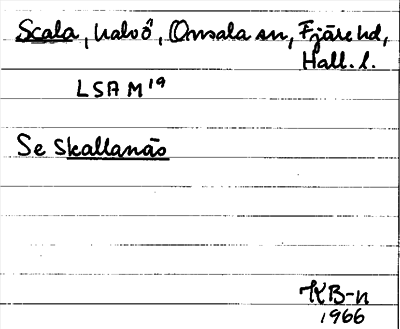 Scala, halvö, Onsala sn, Fjäre hd,
Hall. l.
LSA M19
Se Skallanäs
KB-n
1966